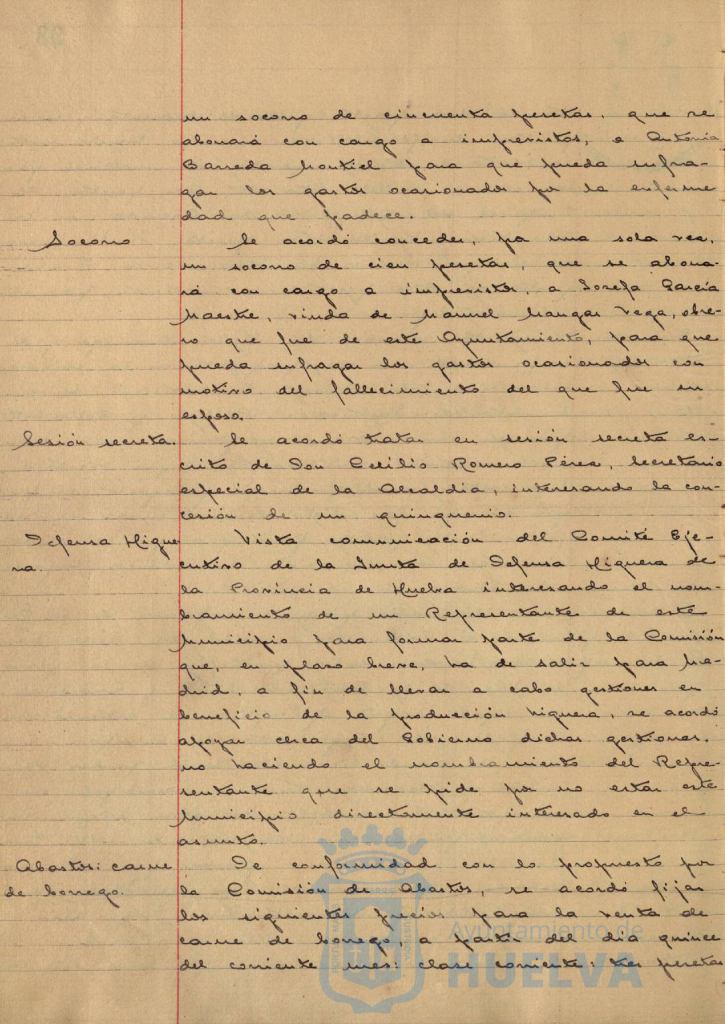 un socorro de cincuenta pesetas, que se
abonará con cargo a imprevistos, a Antonia
Barreda Montiel para que pueda sufra-
gar los gastos ocasionados por la enferme-
dad que padece.
Socorro
Se acordó conceder, por una sola vez,
un socorro de cien pesetas, que se abona-
rá con cargo a imprevistos, a Josefa García
Maestre, viuda de Manuel Mangas Vega, obre-
ro que fue de este Ayuntamiento, para que
pueda sufragar los gastos ocasionados con
motivo del fallecimiento del que fue su
esposo.
Sesión secreta.
Se acordó tratar en sesión secreta es-
crito de Don Cecilio Romero Pérez, Secretario
especial de la Alcaldía, interesando la con-
cesión de un quinquenio.
Defensa Higue-
ra.
Vista comunicación del Comité Eje-
cutivo de la Junta de Defensa Higuera de
la Provincia de Huelva interesando el nom-
bramiento de un Representante de este
Municipio para formar parte de la Comisión
que, en plazo breve, ha de salir para Ma-
drid, a fin de llevar a cabo gestiones en
beneficio de la producción higuera, se acordó
apoyar cerca del Gobierno dichas gestiones,
no haciendo el nombramiento del Repre-
sentante que se pide por no estar este
Municipio directamente interesado en el
asunto.
Abastos: carne
de borrego.
De conformidad con lo propuesto por
la Comisión de Abastos, se acordó fijar
los siguientes precios para la venta de
carne de borrego, a partir del día quince
del corriente mes: clase corriente: tres pesetas
Ayuntamiento de
HUELVA